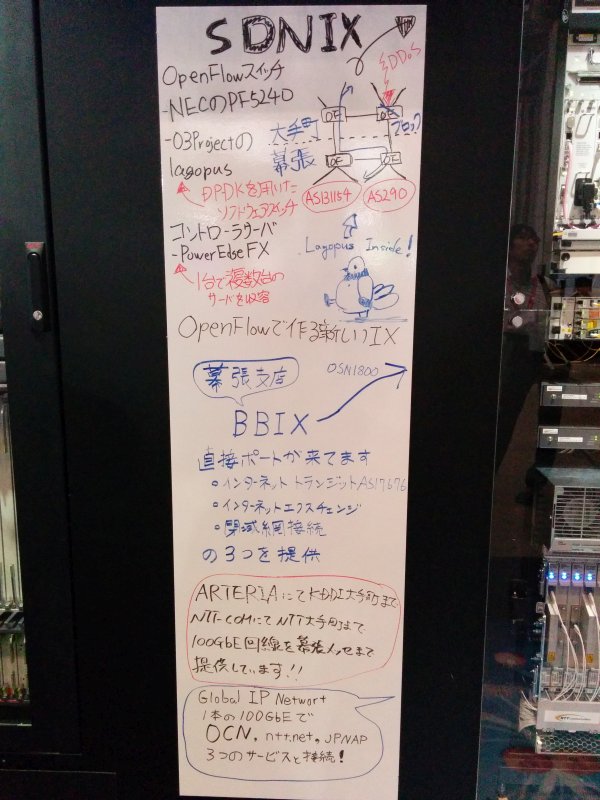 SDNIX
OpenFlowスイッチ
-NECのPF5240
-O3Projectの
lagopus
DPDKを用いた
ソフトウェアスイッチ
コントローラサーバ
-PowerEdge FX
1台で複数台の
サーバを収容
DDoS
OF
OF
大手町
ブロック
幕張
OF
OF
AS131154
AS290
Lagopus Inside!
OpenFlowで作る新しいIX
幕張支店
OSN1800
BBIX
直接ポートが来てます
・インターネットトランジットAS17676
・インターネットエクスチェンジ
・閉域網接続
の3つを提供
ARTERIAにてKDDI大手町まで
NTT-COMにてNTT大手町まで
100GbE回線を幕張メッセまで
提供しています!!
Global IP Network
1本の100GbEで
OCN, ntt.net, JPNAP
3つのサービスと接続!